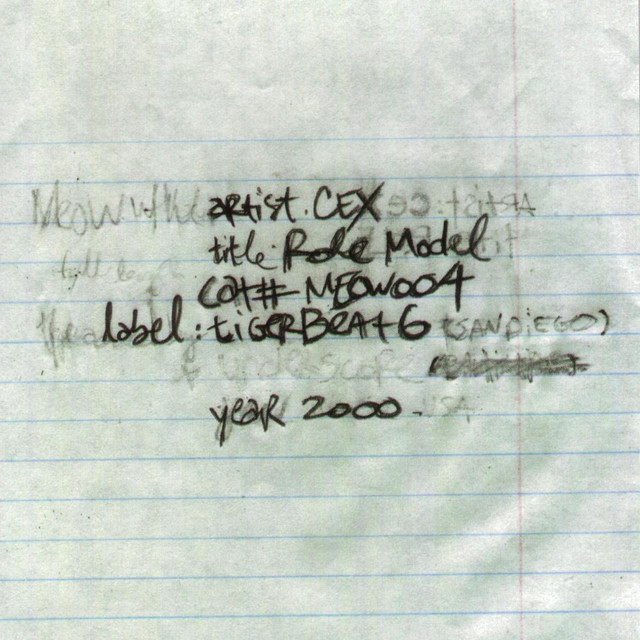 artist. CEX
title: Role Model
cat# MEOW004
label: tiGERBEAt6 (SANDiEGO)
year 2000.